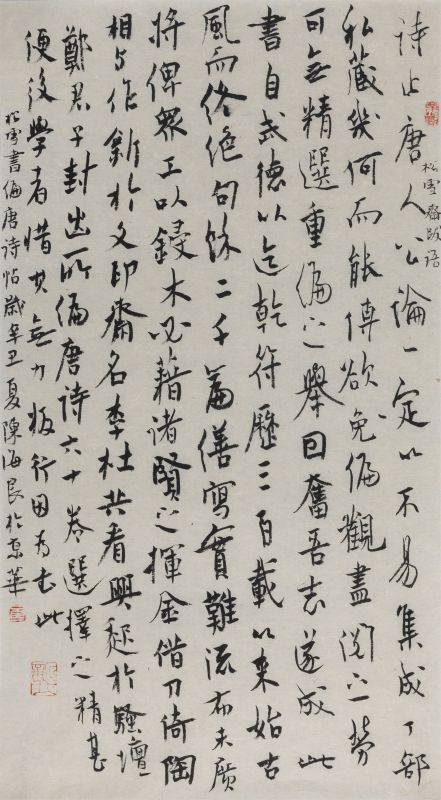 诗止唐人公論一定以不易集成丁部
松雪齋跋語
私藏幾何而能傳欲免偏觀盡閱之勞
可無精選重编之舉曰奮吾志遂成此
書自武德以迄乾符歷三百載以来始古
風而终绝句餘二千篇繕寫實難流布未廣
将俾眾工以鋟木必藉諸賢之揮金借刀倚陶
相与作新於文印齋名李杜共看興起於騷壇
鄭君子封出所编唐诗六十卷選擇之精甚
便後學者惜其無力板行因为书此
松雪書编唐诗帖歲辛丑夏陳海良於京華